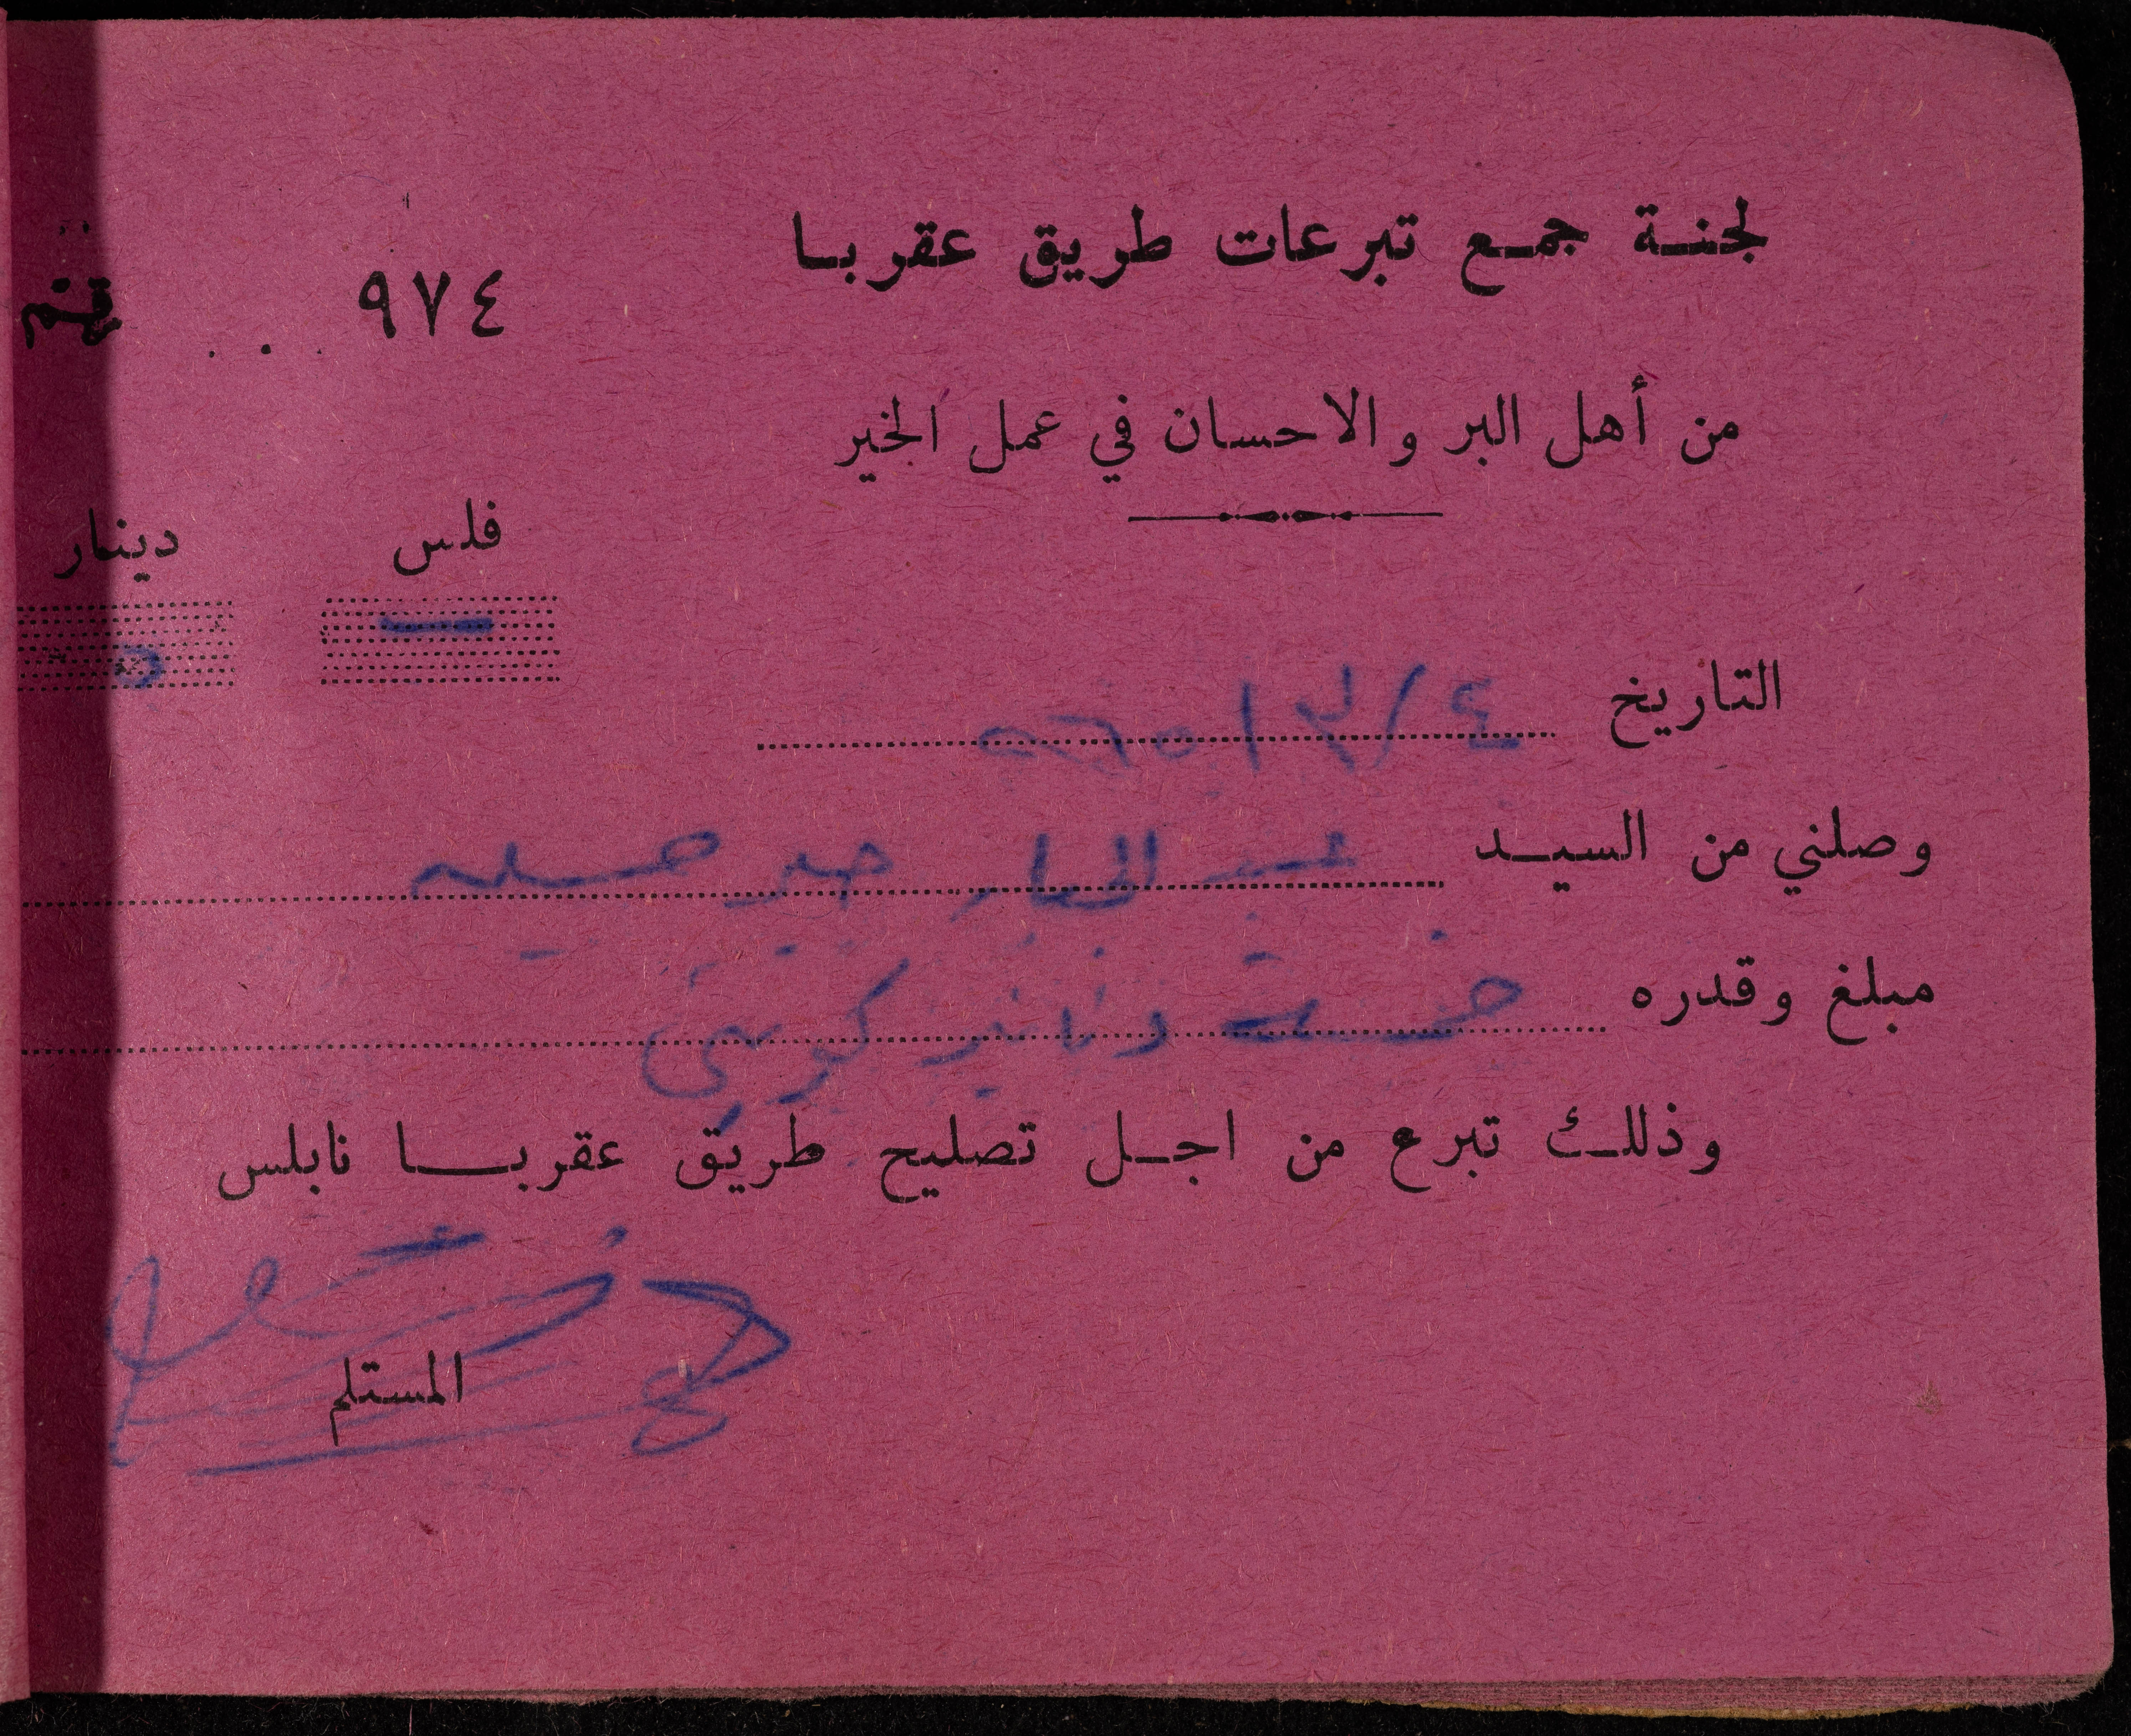 لجنة جمع تبرعات طريق عقربا
٩٧٤
من أهل البر والاحسان في عمل الخير
فلس دينار
— ٥
التاريخ ٤/٣/
وصلني من السيد عبد الجبار حسين
مبلغ وقدره خمسة دنانير كويتي
وذلك تبرع من اجل تصليح طريق عقربا نابلس
المستلم